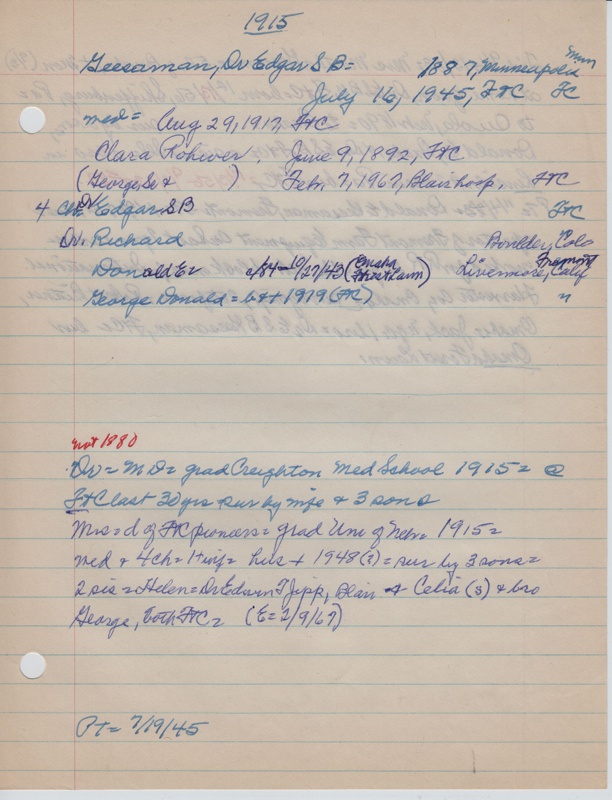 1915
Geesaman, Dr Edgar S B = 1887, Minneapolis Minn
July 16, 1945, FtC FC
med = Aug 29, 1917, FtC
Clara Rohwer, June 9, 1892, FtC
(George, Sr & ) Feb. 7, 1967, Blair hosp, FtC
4 Ch = Dr Edgar S B FtC
Dr. Richard Boulder, Colo
Donald E = 10/27/43 (Omaha Forest Lawn) Livermore, Calif Fremont
George Donald = b & + 1919 (FtC) "
not 1880
Dr = M D = grad Creighton Med School 1915 = @
FtC last 30 yrs sur by wife & 3 sons
Mrs = d of FtC pioneers = grad Uni of Neb = 1915 =
med & 4 ch = 1 + inf = hus + 1948(?) = sur by 3 sons =
2 sis = Helen = Dr Edwin T Jipp, Blair & Celia (s) & bro
George, both FtC = (E = 2/9/67)
PT = 7/19/45